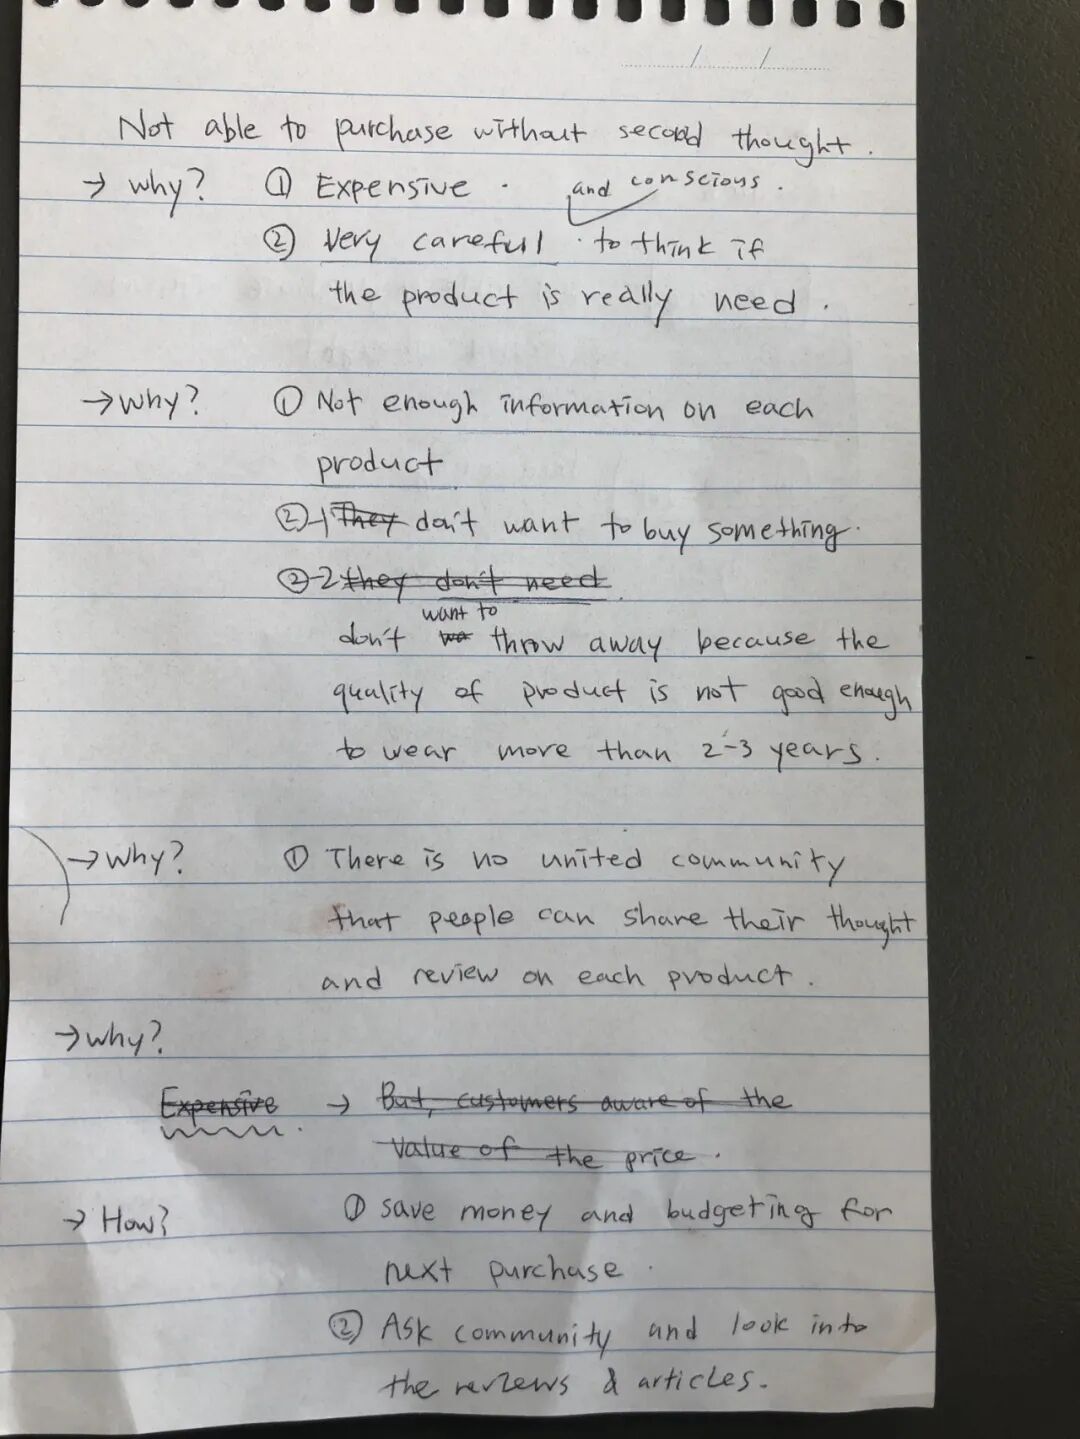 Not able to purchase without second thought.
→ why? ① Expensive.
and conscious.
② Very careful to think if
the product is really need.
→ why? ① Not enough information on each
product
②-1 They don't want to buy something.
②-2 they don't need
want to
don't wa throw away because the
quality of product is not good enough
to wear more than 2-3 years.
→ why? ① There is no united community
that people can share their thought
and review on each product.
→ why?
Expensive → But, customers aware of the
value of the price.
→ How? ① save money and budgeting for
next purchase.
② Ask community and look into
the reviews & articles.